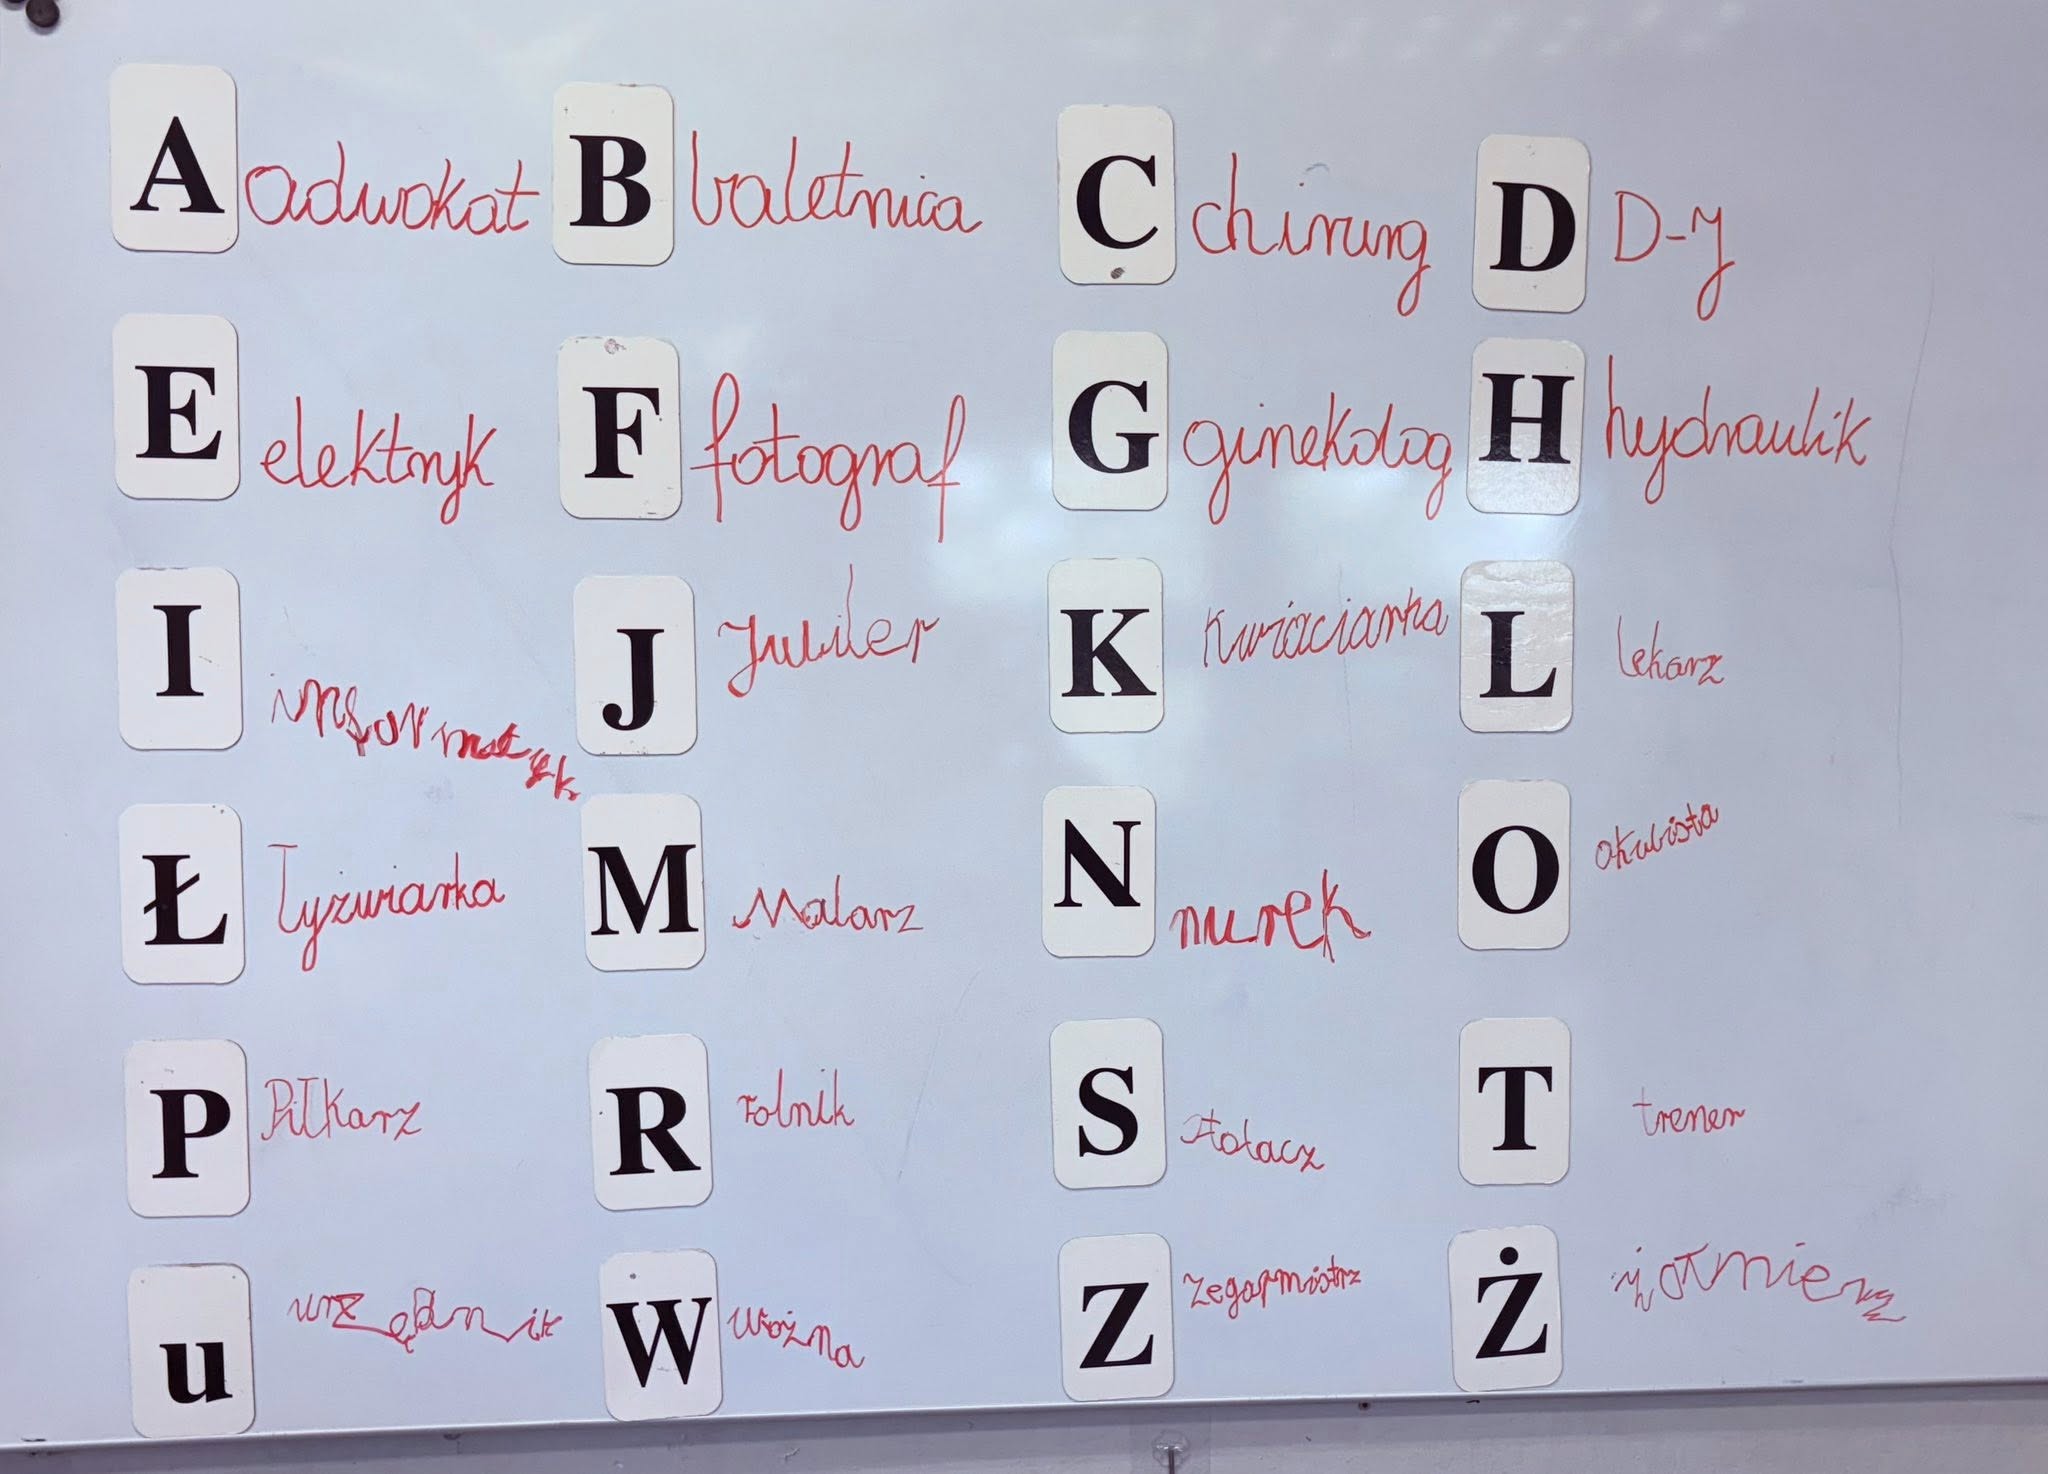 A adwokat B baletnica C chirurg D D-J
E elektryk F fotograf G ginekolog H hydraulik
I informatyk J Jubiler K Kwiaciarka L lekarz
Ł Łyżwiarka M Malarz N nurek O okulista
P Piłkarz R rolnik S Stołacz T trener
u urzędnik W Woźna Z zegarmistrz Ż żołnierz